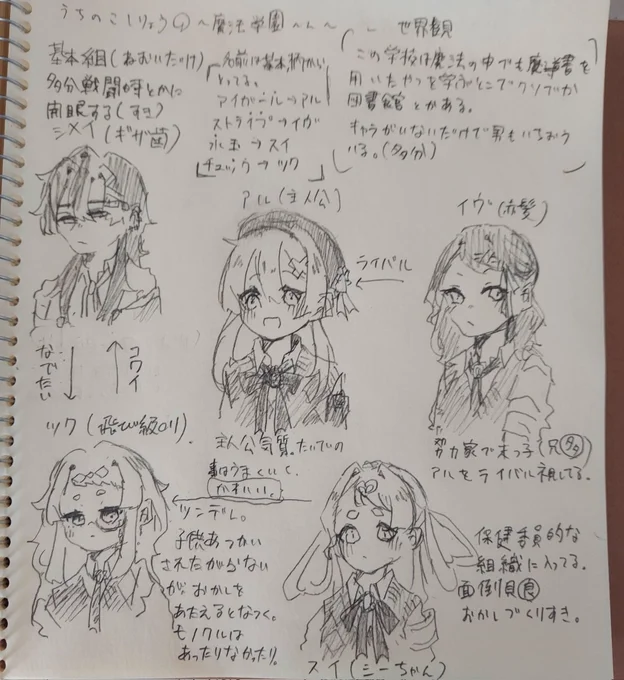 うちのこしりょう① ～魔法学園～
基本組(ねおいたけ)
多分戦闘時とかに
開眼する(すき)
シメイ(ギザ歯)
名前は基本柄から
とってる。
アイガイル→アル
ストライプ→イヴ
水玉→スイ
チェック→ツク
世界観
この学校は魔法の中でも魔導書を
用いたやつを学ぶとこでクソでか
図書館とかある。
キャラがいないだけで男もいちおう
いる。(多分)
アル(主人公)
イヴ(赤髪)
ライバル
なでたい
コワイ
主人公気質。たいていの
事はうまくいく。
かわいい。
努力家で末っ子(兄多)
アルをライバル視してる。
ツク(飛び級ロリ)
ツンデレ。
子供あつかい
されたがらない
が おかしを
あたえるとなつく。
モノクルは
あったりなかったり。
保健委員的な
組織に入ってる。
面倒見良
おかしづくりすき。
スイ(シーちゃん)